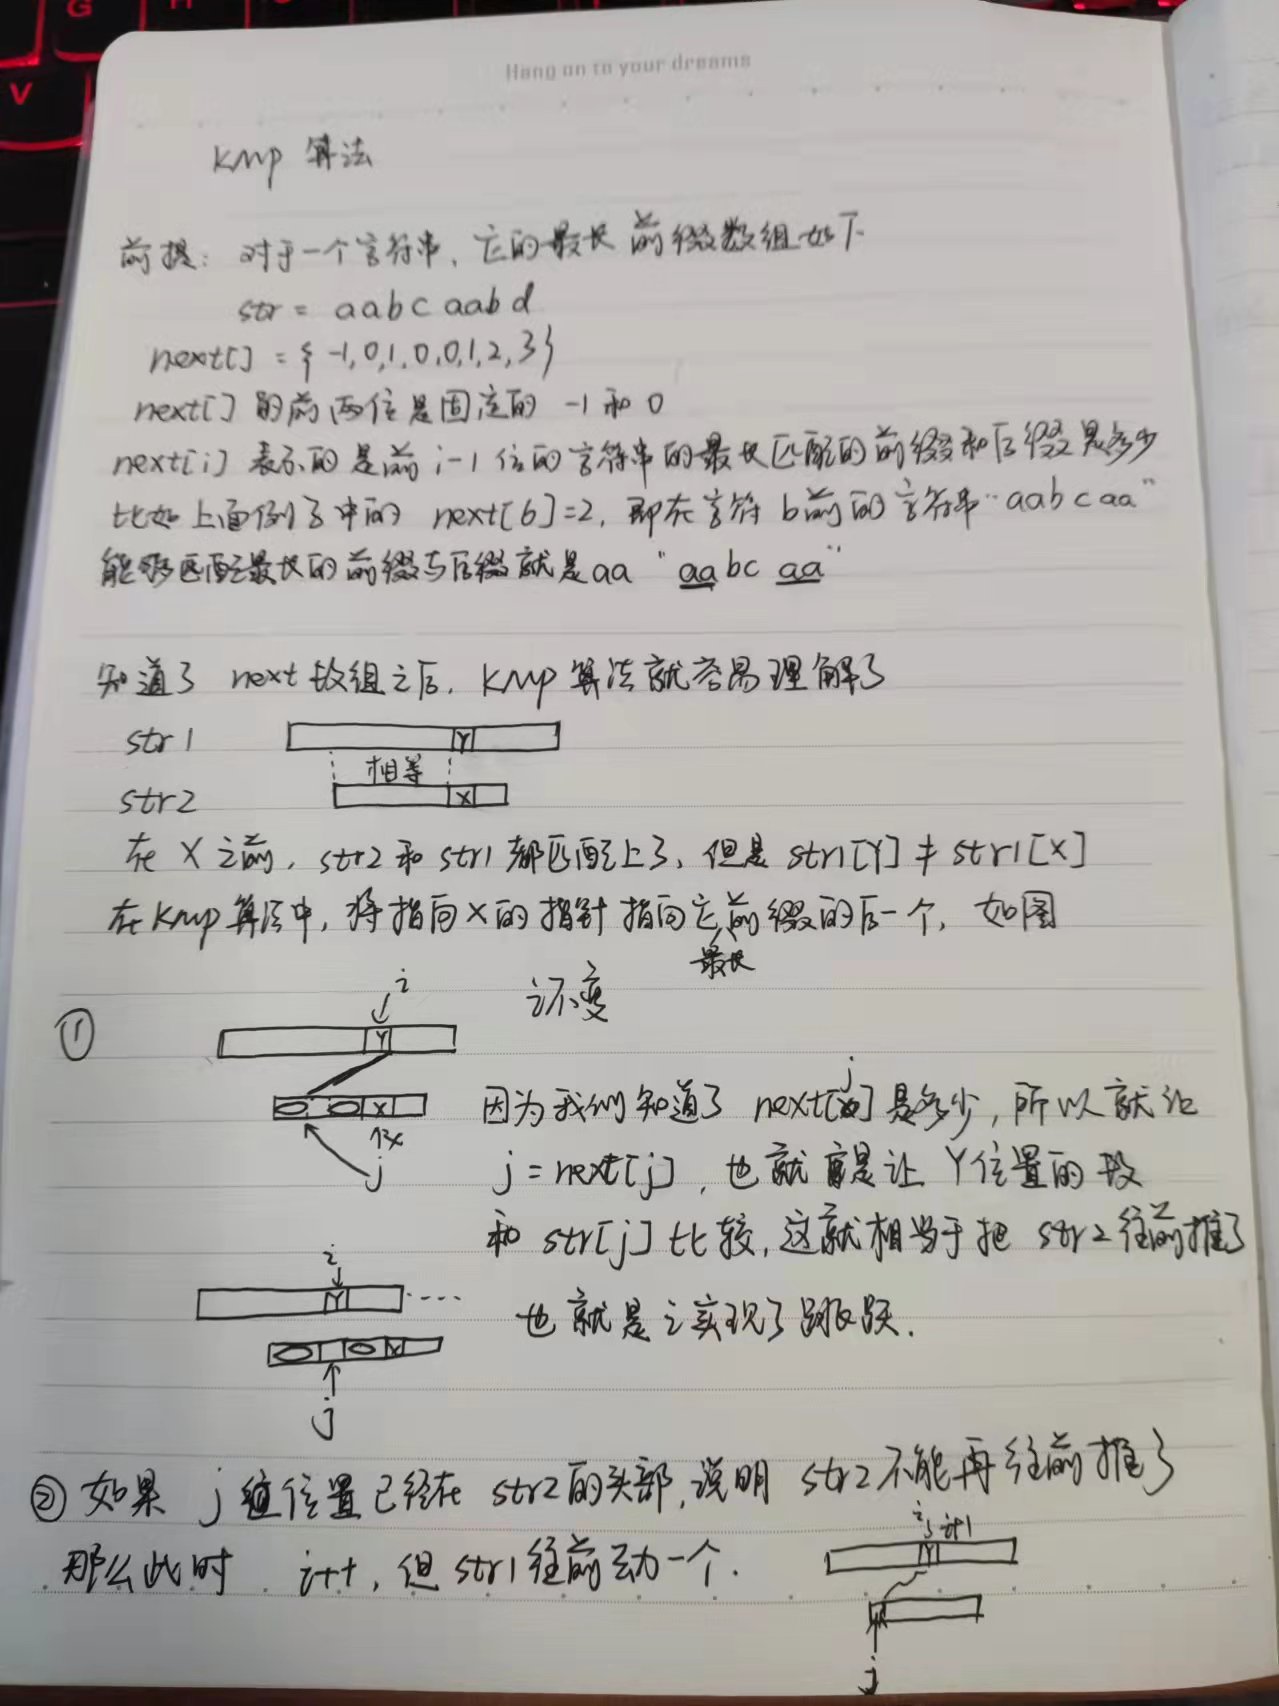 Hang on to your dreams
kmp 算法
前提：对于一个字符串，它的最长前缀数组如下
str = aabcaabd
next[] = {-1,0,1,0,0,1,2,3}
next[] 的前两位是固定的 -1 和 0
next[i] 表示的是前 i-1 位的字符串的最长匹配的前缀和后缀是多少
比如上面例子中的 next[6]=2，即在字符 b前的字符串"aabcaa"
能够匹配最长的前缀与后缀就是aa "aabc aa"
知道了 next数组之后，kmp 算法就容易理解了
str1 Y
相等
str2 X
在 X 之前，str2 和 str1 都匹配上了，但是 str1[Y] ≠ str1[X]
在kmp算法中，将指向X的指针指向它最长前缀的后一个，如图
i
i不变
① Y
X
因为我们知道了 next[j] 是多少，所以就让
j
j = next[j]，也就是让 Y位置的
和 str[j] 比较，这就相当于把 str2往前推了
i
Y
也就是 i实现了跳跃.
X
j
② 如果 j 位置已经在 str2的头部，说明 str2不能再往前推了
i i+1
那么此时 i++，但 str1往前动一个.
Y
j